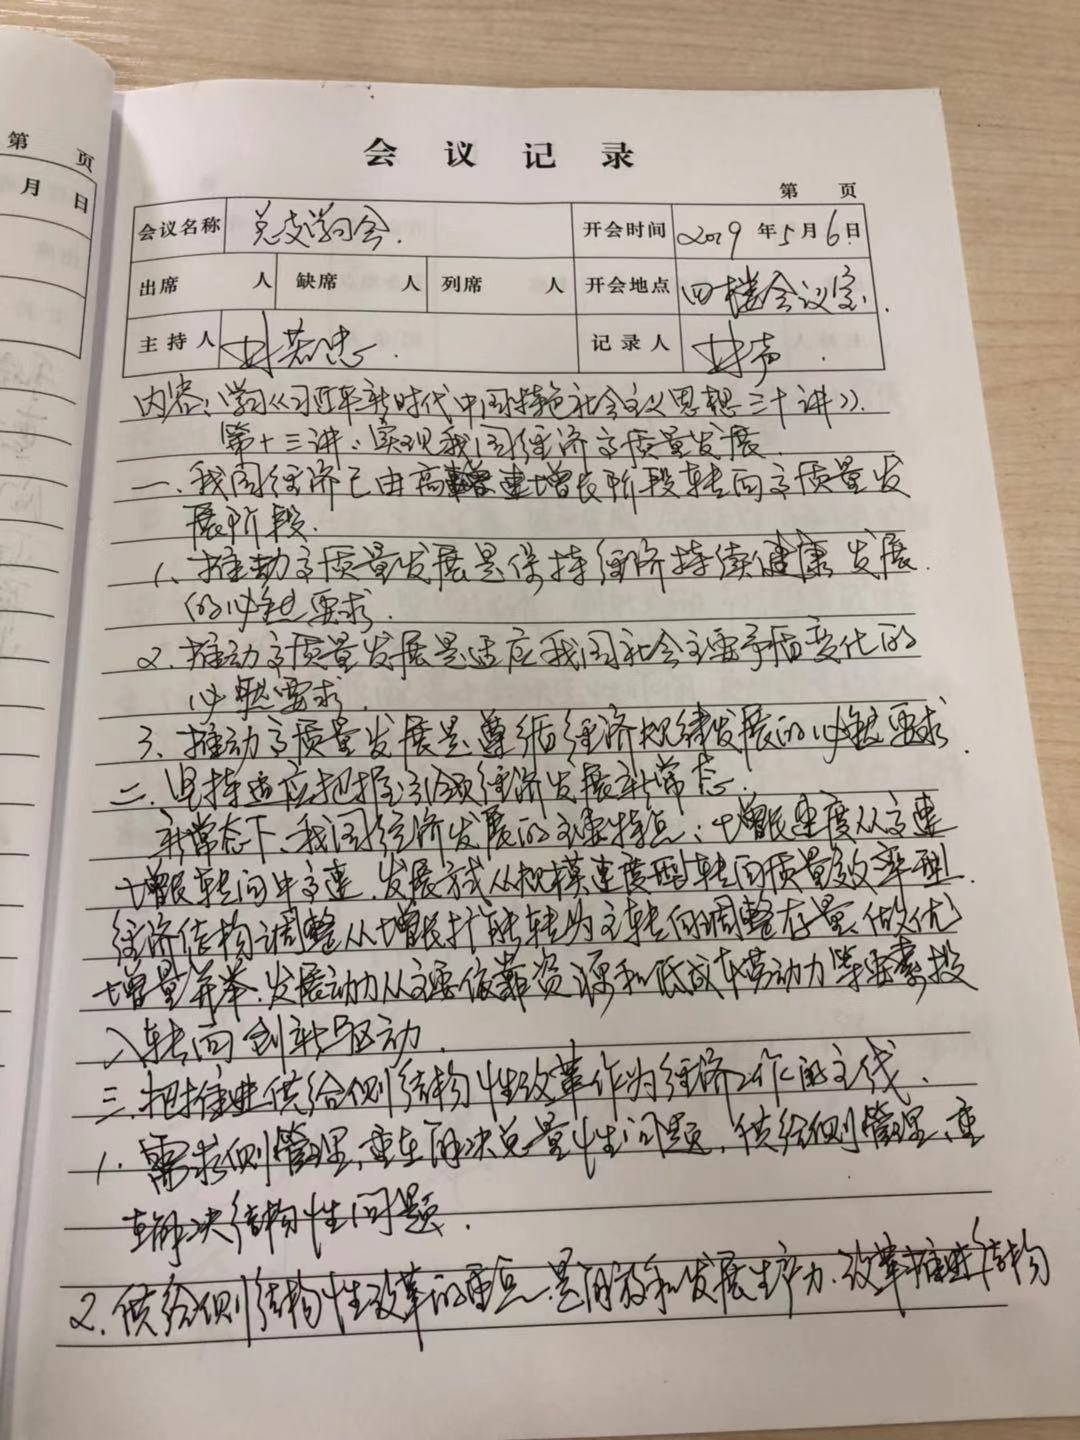 第 页
月 日
会 议 记 录
第 页
会议名称 总支学习会. 开会时间 2019年5月6日
出席 人 缺席 人 列席 人 开会地点 四楼会议室.
主持人 记录人
内容:学习《习近平新时代中国特色社会主义思想三十讲》.
第十三讲:实现我国经济高质量发展.
一、我国经济已由高速增长阶段转向高质量发
展阶段.
1、推动高质量发展是保持经济持续健康发展
的必然要求.
2.推动高质量发展是适应我国社会主要矛盾变化的
必然要求.
3、推动高质量发展是遵循经济规律发展的必然要求.
二、坚持适应把握引领经济发展新常态.
新常态下、我国经济发展的主要特点:增长速度从高速
增长转向中高速,发展方式从规模速度型转向质量效率型.
经济结构调整从增量扩能转为主转向调整存量、做优
增量并举.发展动力从主要依靠资源和低成本劳动力等要素投
入转向创新驱动.
三.把推进供给侧结构性改革作为经济工作的主线.
1.需求侧管理,重在解决总量性问题,供给侧管理、重
在解决结构性问题.
2.供给侧结构性改革的重点.是解放和发展生产力.改革推进结构